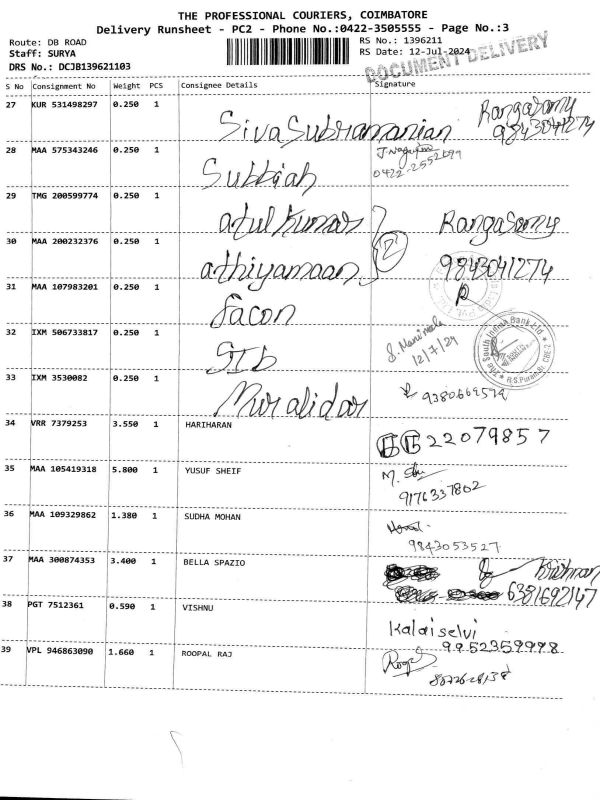 THE PROFESSIONAL COURIERS, COIMBATORE
Delivery Runsheet - PC2 - Phone No.:0422-3505555 - Page No.:3
Route: DB ROAD RS No.: 1396211
Staff: SURYA RS Date: 12-Jul-2024
DRS No.: DCJB139621103 DOCUMENT DELIVERY
S No Consignment No Weight PCS Consignee Details Signature
27 KUR 531498297 0.250 1 Siva Subramanian Rangasamy
9843041274
28 MAA 575343246 0.250 1 Subbiah
29 TMG 200599774 0.250 1 atul kumar Rangasamy
30 MAA 200232376 0.250 1 athiyamaan 2 9843041274
31 MAA 107983201 0.250 1 facon
32 IXM 506733817 0.250 1 SIb 12/7/24 The South Indian Bank Ltd R.S.Puram Br. CBE-2
33 IXM 3530082 0.250 1 Muralidar
34 VRR 7379253 3.550 1 HARIHARAN 22079857
35 MAA 105419318 5.800 1 YUSUF SHEIF 9176337802
36 MAA 109329862 1.380 1 SUDHA MOHAN 9843053527
37 MAA 300874353 3.400 1 BELLA SPAZIO Krishnan
6381692147
38 PGT 7512361 0.590 1 VISHNU Kalaiselvi
9952359998
39 VPL 946863090 1.660 1 ROOPAL RAJ